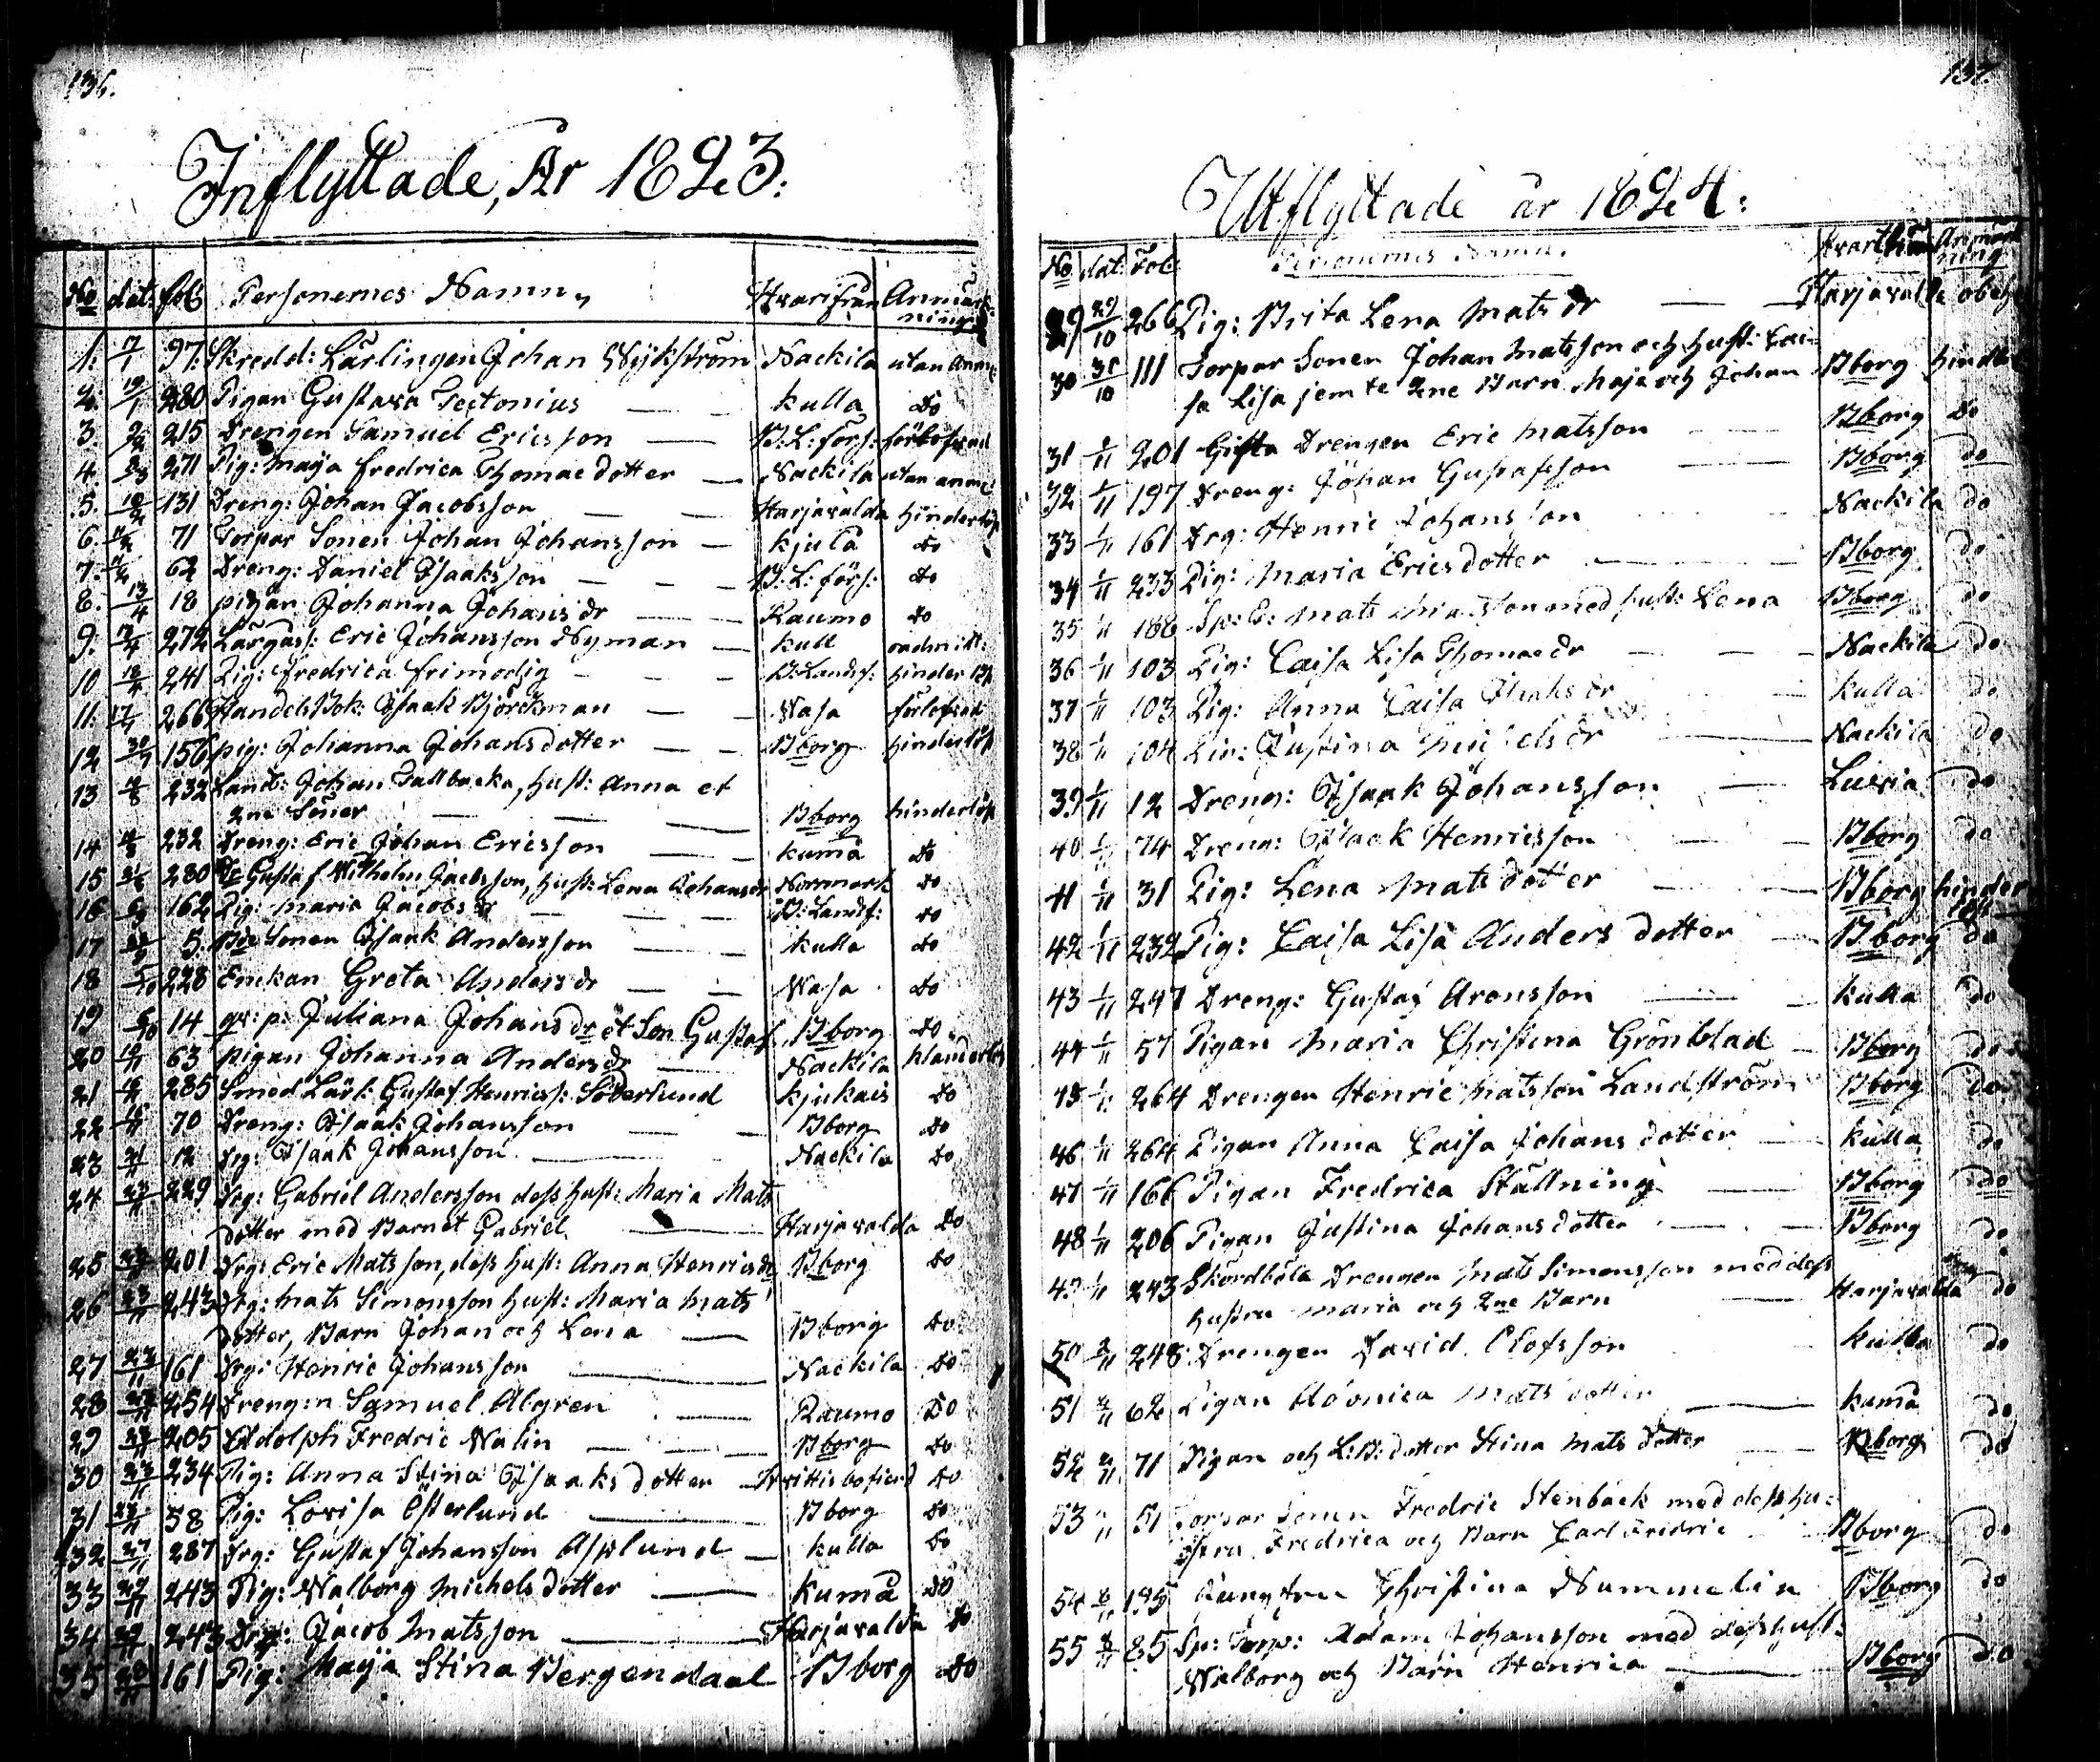 136.
Inflyttade, År 1823:
No dat: fol: Personernes Namn, Hvarifrån Anmärk-
ning
1: 7/1 97: Skredd: Lärlingen Johan Wykström Nackila utan anm:
2: 19/1 280 Pigan Gustava Tectonius kulla do
3. 215 Drengen Samuel Ericsson B:L:förs:
4. 271 Pig: Maja Fredrica Thomae dotter Nackila utan anm:
5. 131 Dreng: Johan Jacobsson Harjavalda hinderlöp
6. 71 Torpar Sonen Johan Johansson kjula do
7. 62 Dreng: Daniel Isaaksson B:L: förs: do
8. 13/4 18 pigan Johanna Johans dr Raumo do
9. 272 Lärgass: Eric Johansson Nyman kull
10 18/4 241 Pig: Fredrica Frimodig B:Landsf: hinderlöp
11: 17/7 266 Handels Bok: Isaak Björckman Wasa förlofvad
12 30/7 156 pig: Johanna Johans dotter Bborg hinderlöp
13 232 Landb: Johan Tallbacka, hust: Anna et
2ne Söner Bborg hinderlöp
14 232 Dreng: Eric Johan Ericsson kumå do
15 280 Gustaf Wilhelm Jacobsson, hust: Lena Johans dr Norrmark do
16 162 Pig: Maria Jacobs dr B:Landsf: do
17 5. Sonen Isaak Andersson kulla do
18 228 Enekan Greta Anders dr Wasa do
19 6/10 14 qv: p: Juliana Johans dr et Son Gustaf Bborg do
20 63 pigan Johanna Anders dr Nackila hinderlös
21 285 Smed Lärl: Gustaf Henricss: Söderlund kjukais do
22 70 Dreng: Isaak Johansson Bborg do
23 12 Drg: Isaak Johansson Nackila do
24 23/11 229 Drg: Gabriel Andersson dess hust: Maria Mats
dotter med Barnet Gabriel Harjavalda do
25 201 Drg: Eric Matsson, dess hust: Anna Henrics dr Bborg do
26 23/11 243 Drg: Mats Simonsson hust: Maria Mats
dotter, Barn Johan och Lena Bborg do
27 23/11 161 Drg: Henric Johansson Nackila do
28 254 Dreng:n Samuel Algren Raumo do
29 23/11 205 Adolph Fredric Walin Bborg do
30 23/11 234 Pig: Anna Stina Isaaks dotter do
31 23/11 58 Pig: Lovisa Österlund Bborg do
32 287 Drg: Gustaf Johansson Asplund kulla do
33 243 Pig: Walborg Michels dotter kumå do
34 243 Drg: Jacob Matsson Harjavalda do
35 161 Pig: Maja Stina Bergendaal Bborg do
137.
Utflyttade år 1824:
No dat: Fol: Personernes Namn. Hvarthän Anmärk
ning
29 29/10 266 Pig: Brita Lena Mats dr Harjavalda
30 111 Torpar Sonen Johan Matsson och hust: Cai-
sa Lisa jemte 2ne Barn Maja och Johan Bborg
31 1/11 201 Gifta Drengen Eric Matsson Bborg do
32 1/11 197 Dreng: Johan Gustafsson Bborg do
33 1/11 161 Drg: Henric Johansson Nackila do
34 1/11 233 Pig: Maria Erics dotter Bborg do
35 1/11 188 Mats med hust: Lena Bborg do
36 1/11 103 Pig: Caisa Lisa Thomae dr Nackila do
37 1/11 103 Pig: Anna Caisa Isaks dr kulla do
38 1/11 104 Pig: Justina Michels dr Nackila do
39 1/11 12 Dreng: Isaak Johansson Luvia do
40 1/11 74 Dreng: Isaak Henricsson Bborg do
41 1/11 31 Pig: Lena Mats dotter Bborg hinder
42 1/11 232 Pig: Caisa Lisa Anders dotter Bborg do
43 1/11 247 Dreng: Gustaf Aronsson kulla do
44 1/11 57 Pigan Maria Christina Grönblad Bborg do
45 1/11 264 Drengen Henric Matsson Landström Bborg do
46 1/11 264 Pigan Anna Caisa Johans dotter kulla do
47 1/11 166 Pigan Fredrica Ställning Bborg do
48 1/11 206 Pigan Justina Johans dotter Bborg do
49 1/11 243 Skördböle Drengen Mats Simonsson med dess
hustru Maria och 2ne Barn Harjavalda do
50 248 Drengen David Olofsson kulla do
51 62 Pigan Mats dotter kumå do
52 71 Pigan och L:B: dotter Stina Mats dotter Bborg do
53 51 Torpar Sonen Fredric Stenback med dess hu-
stru Fredrica och Barn Carl Fredric Bborg do
54 185 Jungfrun Christina Nummelin Bborg do
55 85 Sp: Torp: Adam Johansson med dess hust:
Walborg och Barn Henrica Bborg do